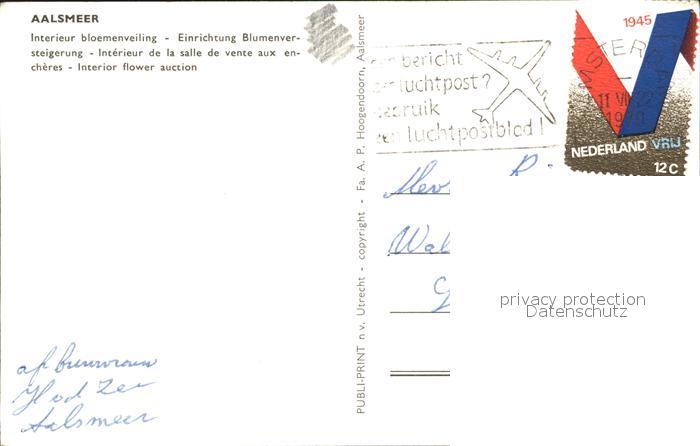 AALSMEER
Interieur bloemenveiling - Einrichtung Blumenver-
steigerung - Intérieur de la salle de vente aux en-
chères - Interior flower auction
PUBLI-PRINT n.v. Utrecht - copyright - Fa. A. P. Hoogendoorn, Aalsmeer
een bericht
luchtpost?
gebruik
een luchtpostblad!
1945
11 VII
1970
NEDERLAND VRIJ
12 C
Mev
Wal
G
privacy protection
Datenschutz
Aalsmeer